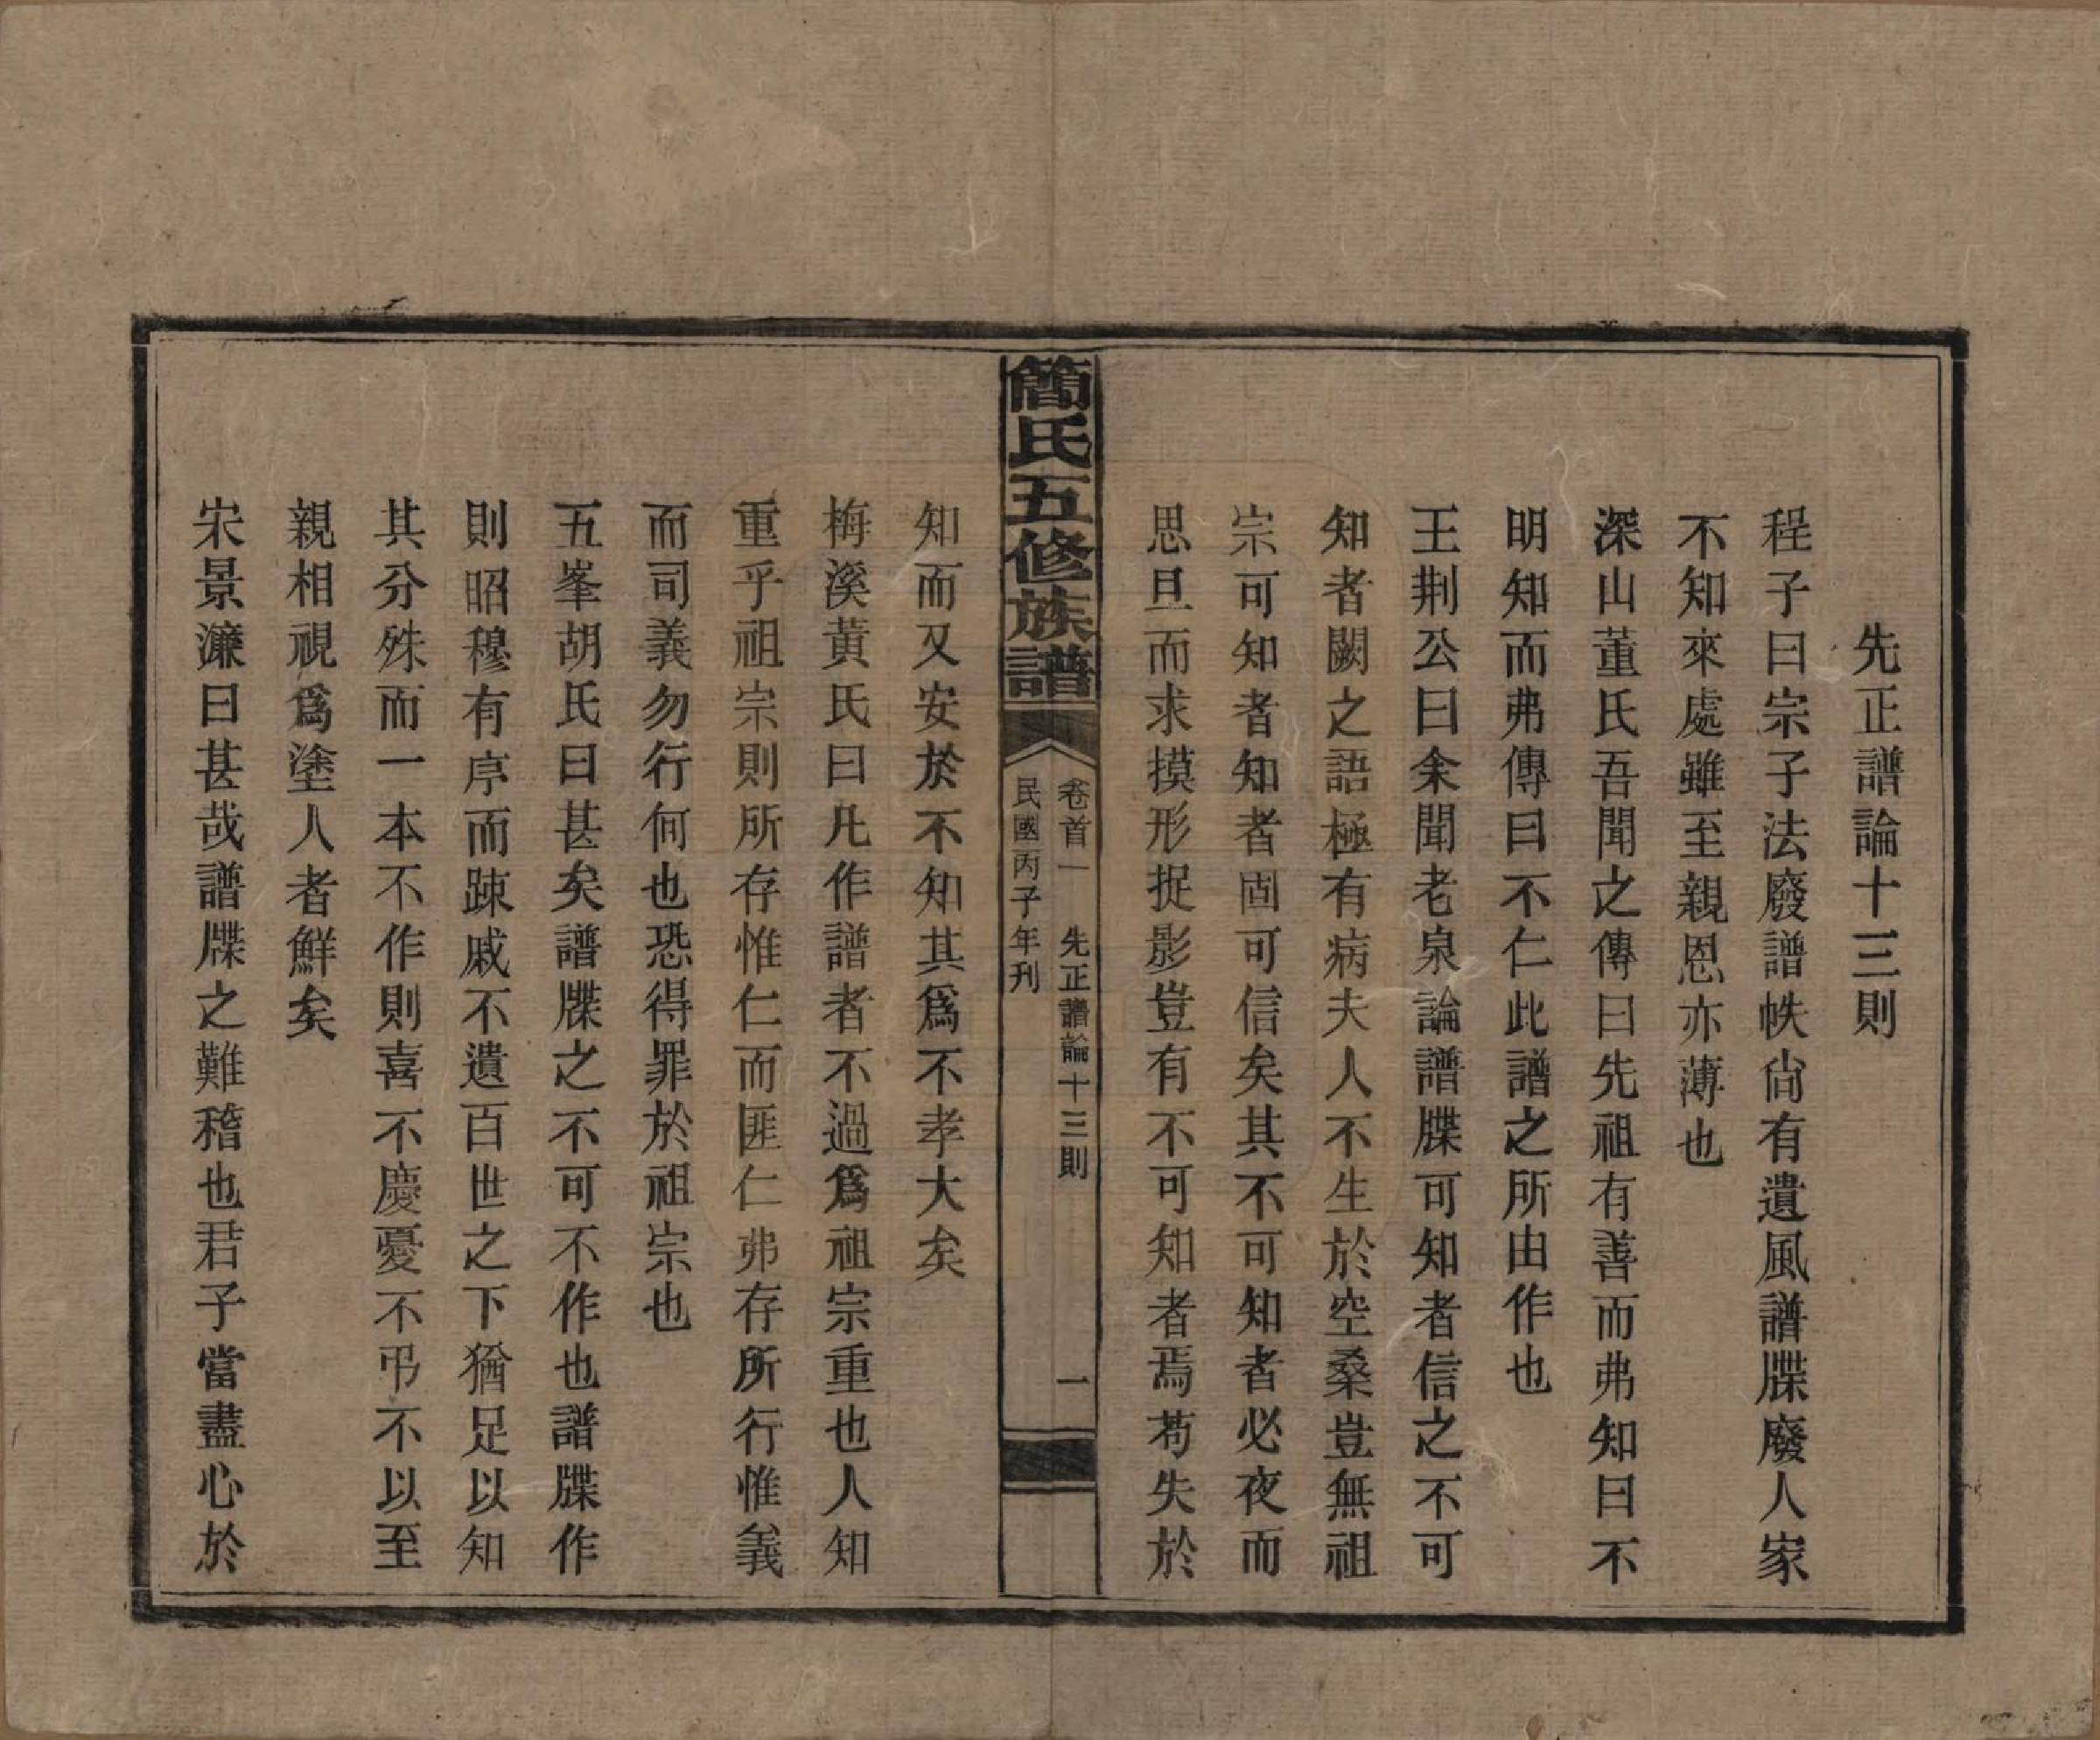 先正譜論十三則
程子曰宗子法廢譜帙尙有遺風譜牒廢人家
不知來處雖至親恩亦薄也
深山董氏吾聞之傳曰先祖有善而弗知曰不
明知而弗傳曰不仁此譜之所由作也
王荆公曰余聞老泉論譜牒可知者信之不可
知者闕之語極有病夫人不生於空桑豈無祖
宗可知者知者固可信矣其不可知者必夜而
思旦而求摸形捉影豈有不可知者焉茍失於
簡氏五修族譜
卷首一 先正譜論十三則 一
民國丙子年刋
知而又安於不知其爲不孝大矣
梅溪黃氏曰凡作譜者不過爲祖宗重也人知
重乎祖宗則所存惟仁而匪仁弗存所行惟義
而司義勿行何也恐得罪於祖宗也
五峯胡氏曰甚矣譜牒之不可不作也譜牒作
則昭穆有序而踈戚不遺百世之下猶足以知
其分殊而一本不作則喜不慶憂不弔不以至
親相視爲塗人者鮮矣
宋景濂曰甚哉譜牒之難稽也君子當盡心於